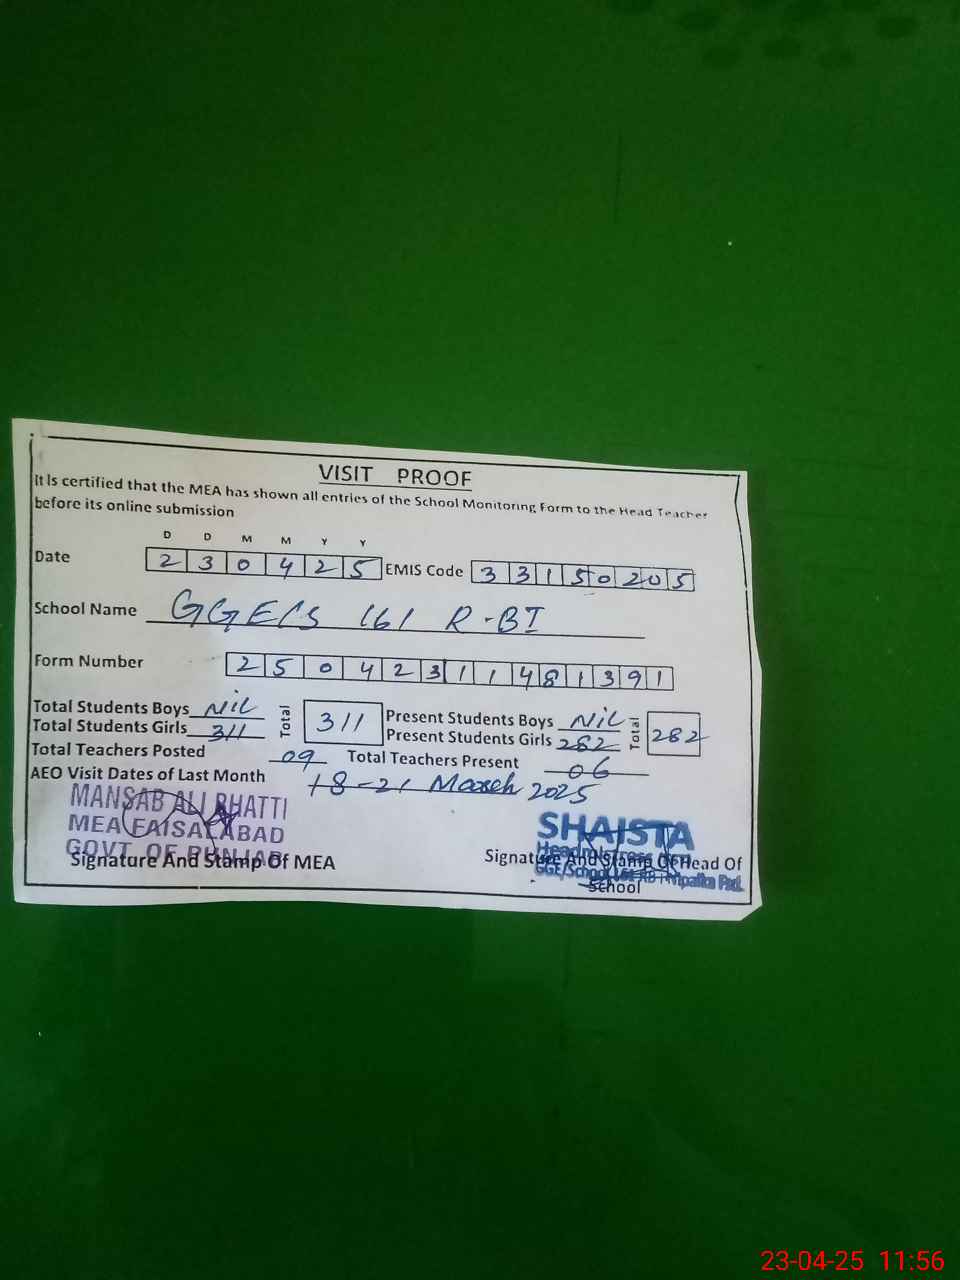 VISIT PROOF
It Is certified that the MEA has shown all entries of the School Monitoring Form to the Head Teacher
before its online submission
D D M M Y Y
Date 2 3 0 4 2 5 EMIS Code 3 3 1 5 0 2 0 5
School Name GGECS 161 R-BI
Form Number 2 5 0 4 2 3 1 1 4 8 1 3 9 1
Total Students Boys Nil Total 311 Present Students Boys Nil Total 282
Total Students Girls 311 Present Students Girls 282
Total Teachers Posted 09 Total Teachers Present 06
AEO Visit Dates of Last Month 18-21 March 2025
MANSAB ALI BHATTI
MEA FAISALABAD
GOVT. OF PUNJAB
Signature And Stamp Of MEA
SHAISTA
Headmistress
GGE/School 161 RB
Signature And Stamp Of Head Of
School
23-04-25 11:56